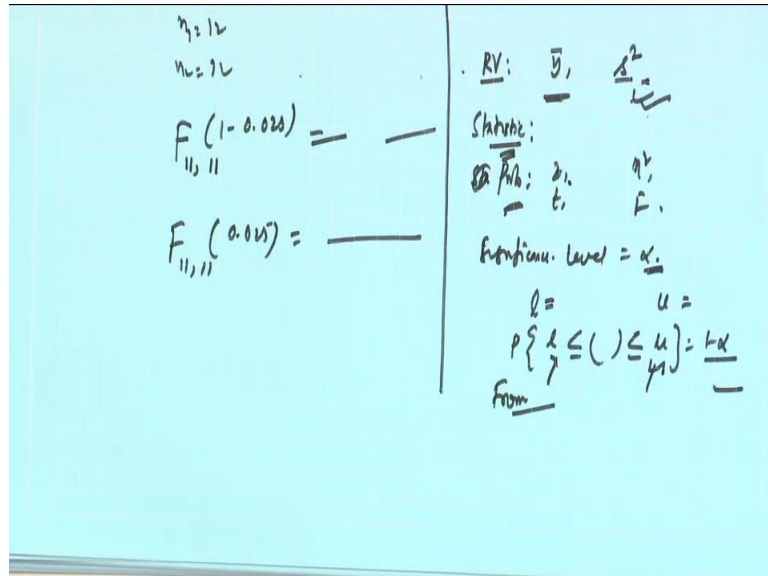 n₁ = 12
n₂ = 12
F₁₁,₁₁ (1 - 0.025) =
F₁₁,₁₁ (0.025) =
RV: ȳ, s²
Statistic:
z, χ²,
t, F.
Significance level = α.
l = u =
P{ l ≤ ( ) ≤ u } = 1-α
From